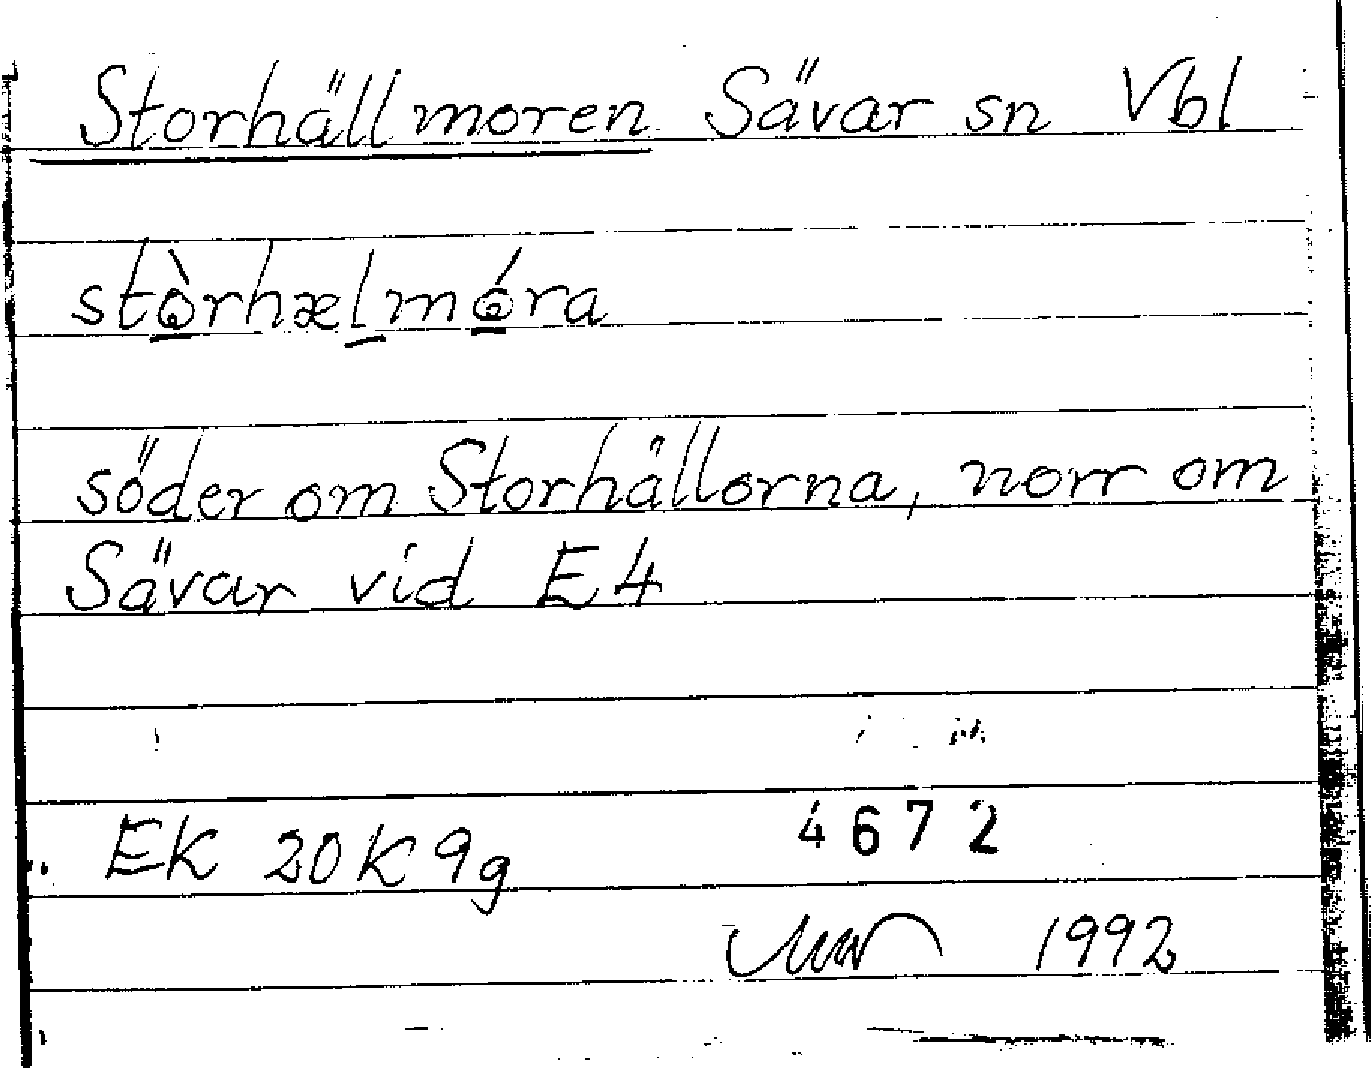 Storhällmoren Sävar sn Vbl
stòrhælmóra
söder om Storhällorna, norr om
Sävar vid E4
EK 20K9g
4672
1992